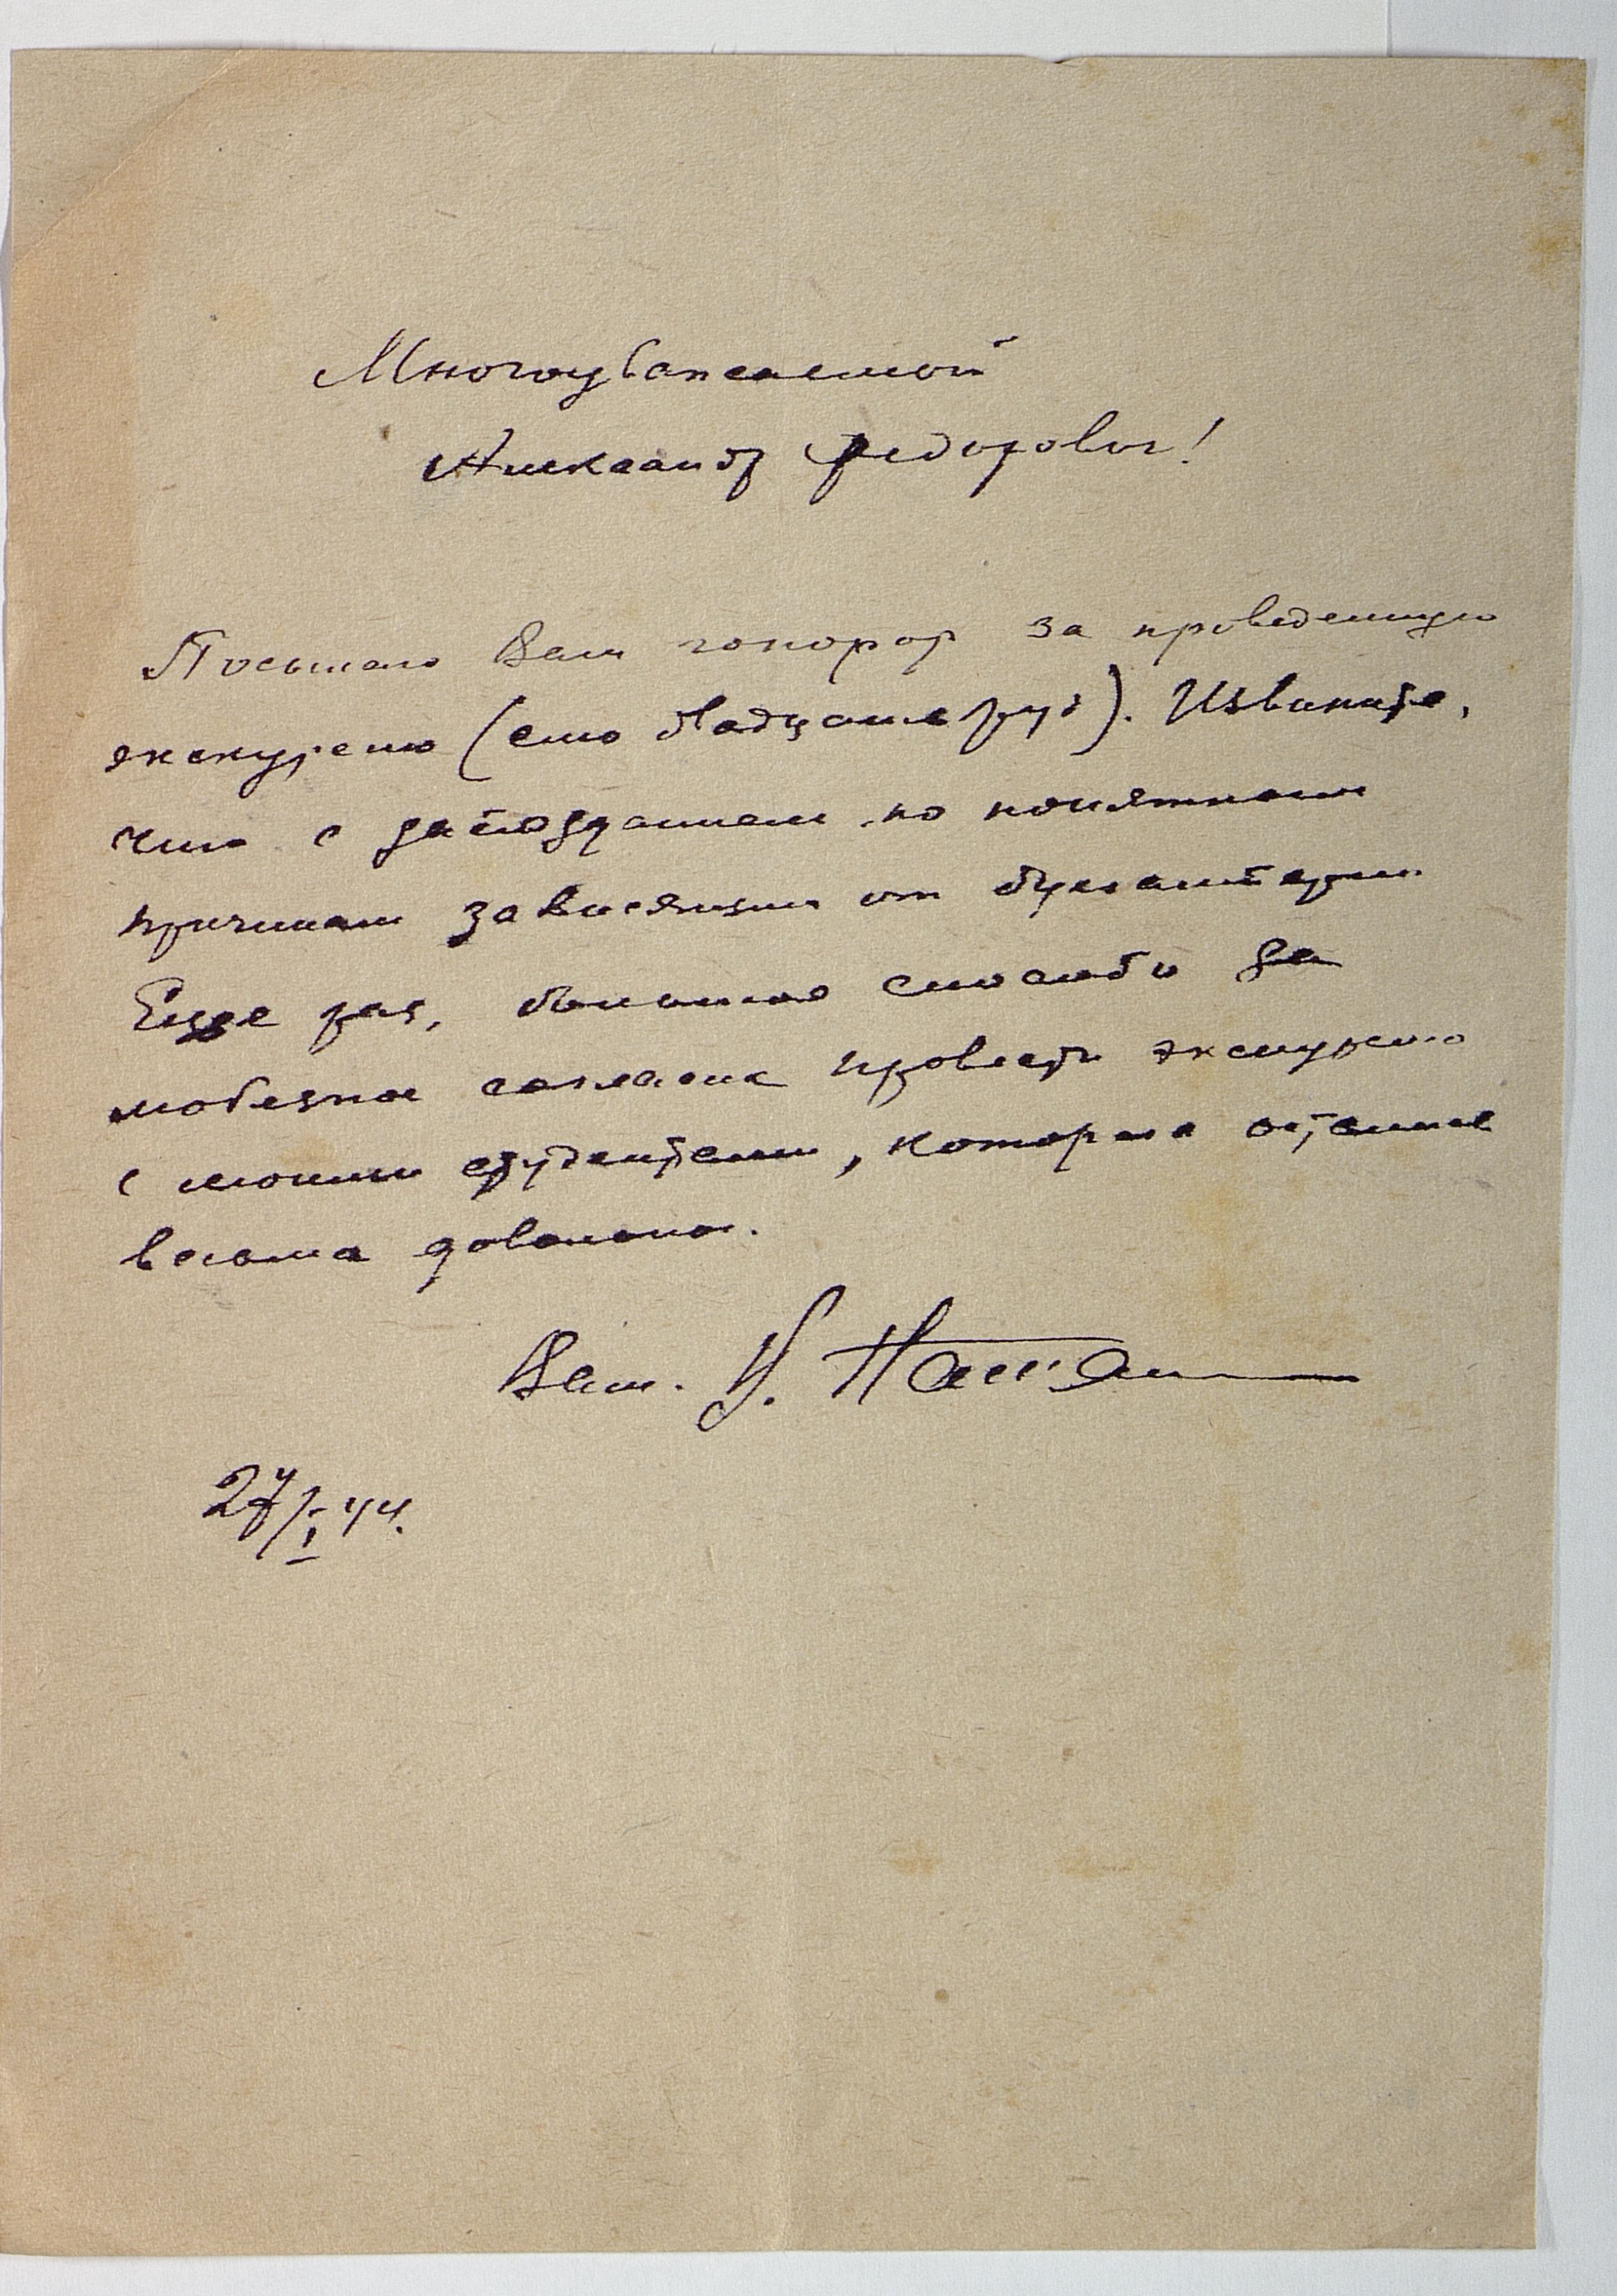 Многоуважаемый
Александр Федорович!
Посылаю Вам гонорар за проведенную
экскурсию (сто двадцать руб). Извините,
что с запозданием по понятным
причинам зависящим от бухгалтерии.
Еще раз, большое спасибо за
любезное согласие провести экскурсию
с моими студентами, которые остались
весьма довольны.
Ваш.
27/I 44.